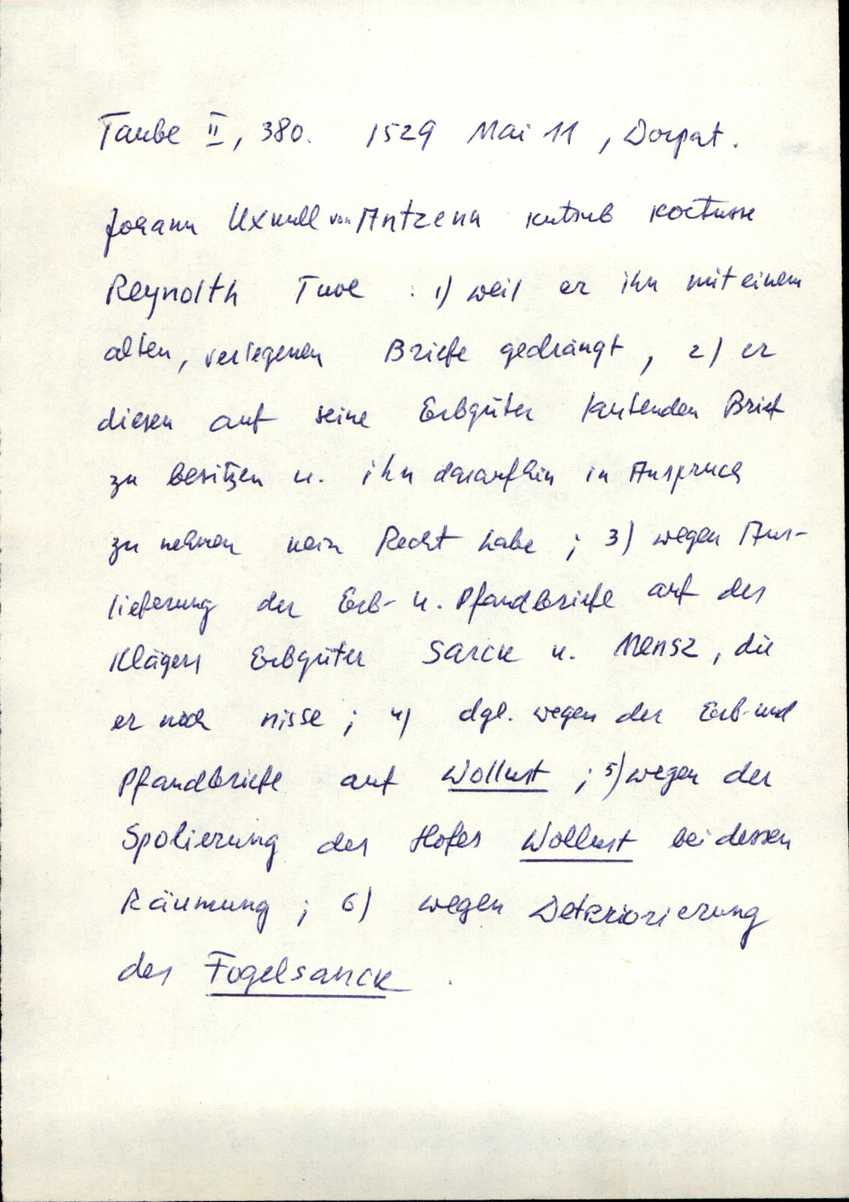 Taube II, 380. 1529 Mai 11, Dorpat.
Johann Uxnull von Antzenn kutsub kohtusse
Reynolth Tuve : 1) weil er ihn mit einem
alten, verlegenen Briefe gedrängt, 2) er
diesen auf seine Erbgüter lautenden Brief
zu besitzen u. ihn daraufhin in Anspruch
zu nehmen kein Recht habe ; 3) wegen Aus-
lieferung der Erb- u. Pfandbriefe auf des
Klägers Erbgüter Sarck u. Mensz, die
er noch nisse ; 4) dgl. wegen der Erb- und
Pfandbriefe auf Wollust ; 5) wegen der
Spolierung des Hofes Wollust bei dessen
Räumung ; 6) wegen Deteriorierung
des Fogelsanck .